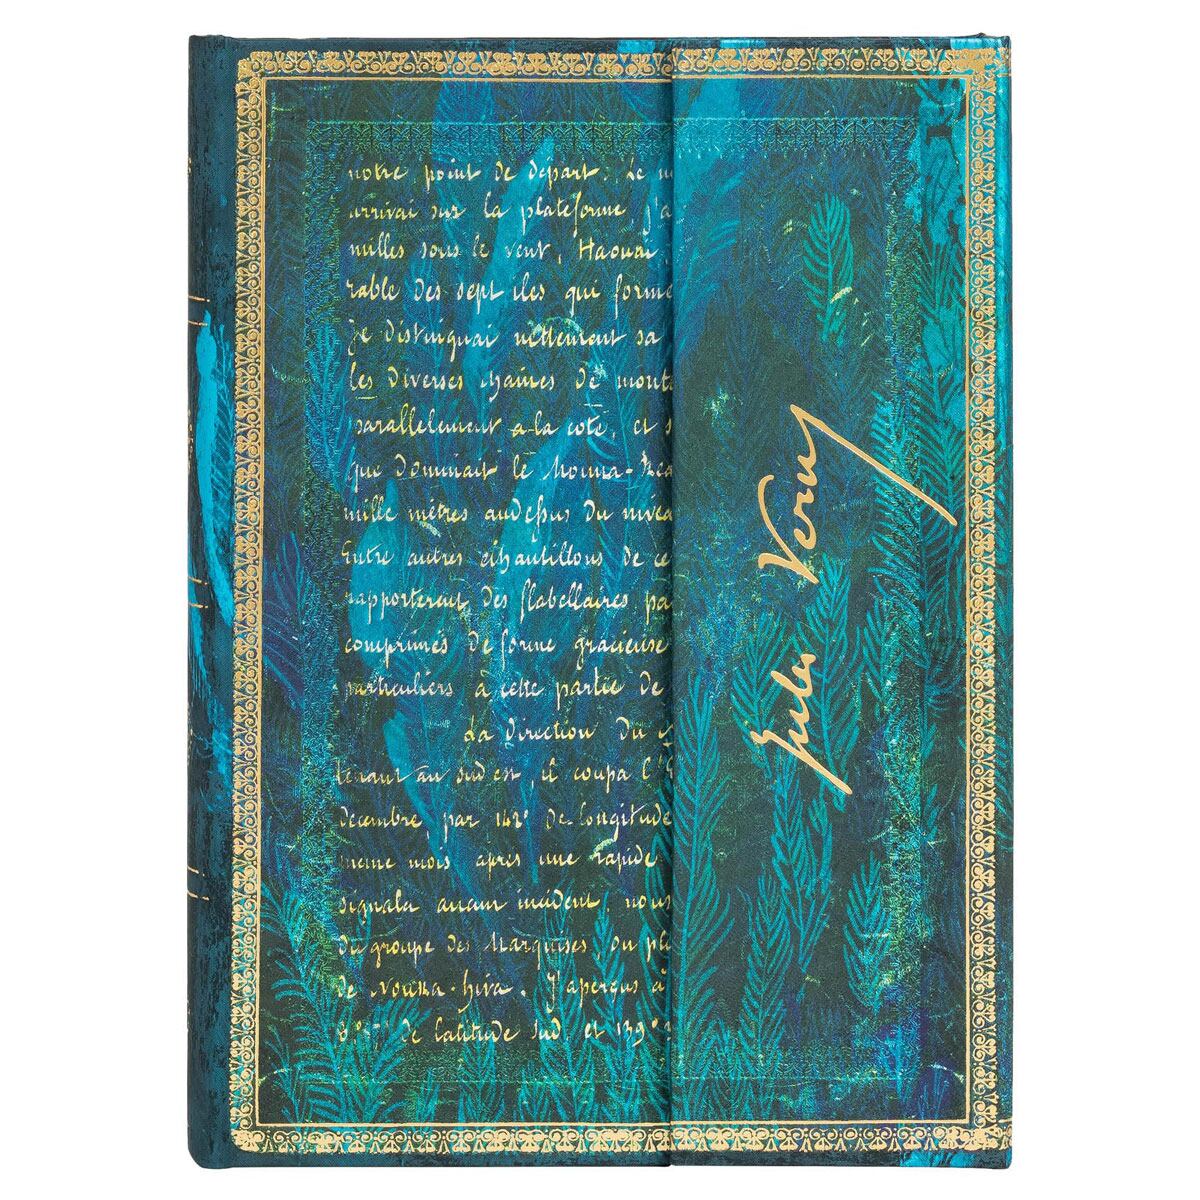 notre point de départ. Le
arrivai sur la plateforme, j'a
milles sous le vent, Haouai,
rable des sept iles qui forme
Je distinguai nettement sa
les diverses chaines de mont
parallelement a la cote, et s
que dominait le Mouna-Rea
mille mètres audessus du nivea
Entre autres échantillons de ce
rapporterent des flabellaires pa
comprimés de forme gracieuse
particuliers à cette partie de
La direction du
tenant au sud est, il coupa l'E
decembre, par 142° de longitude
meme mois après une rapide
signala aucun incident, nous
du groupe des Marquises, ou pl
de Nouka-hiva. J'aperçus à
8° 57' de latitude sud, et 139°
Jules Verne